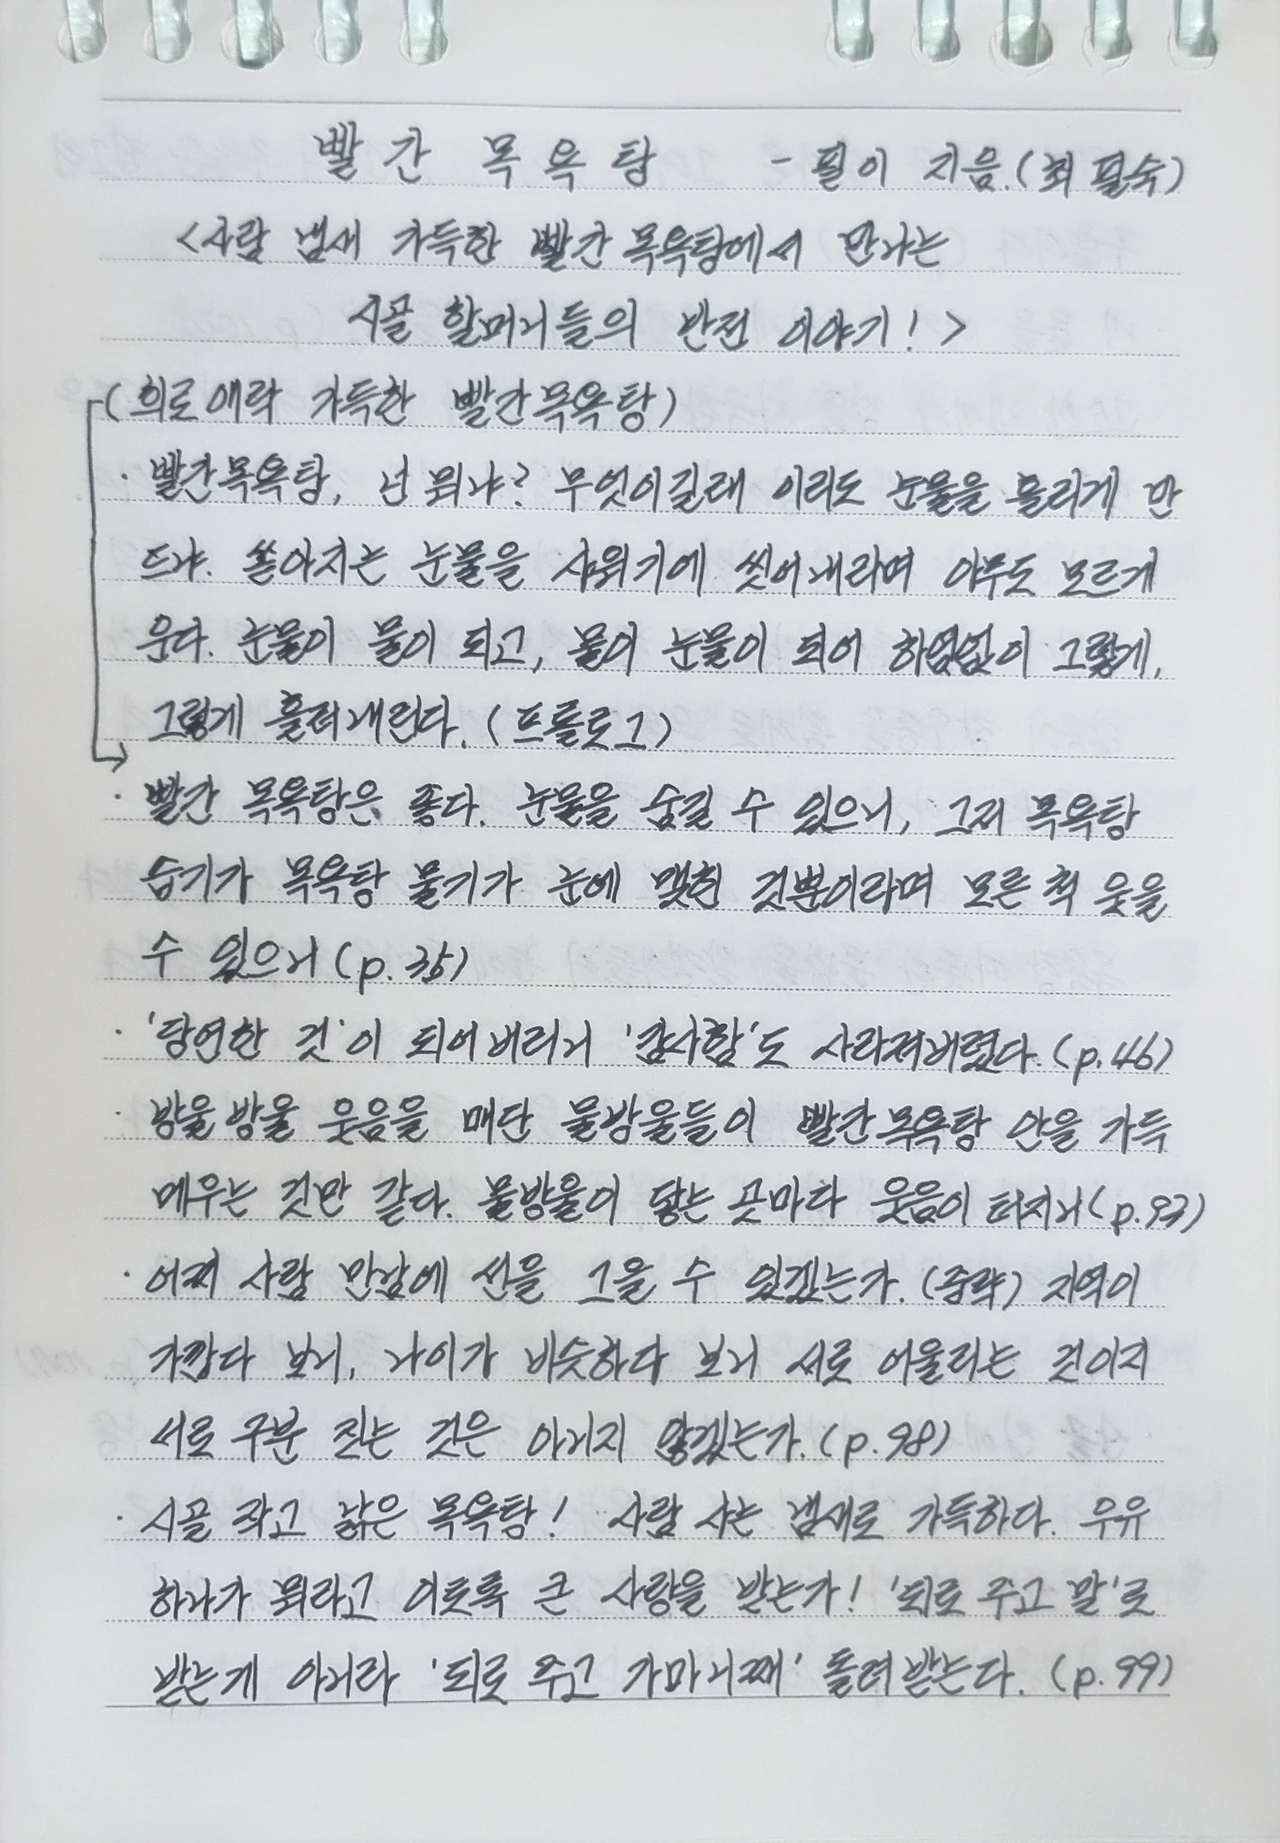 빨간 목욕탕 - 필이 지음.(최필숙)
<사람 냄새 가득한 빨간목욕탕에서 만나는
시골 할머니들의 반전 이야기!>
(희로애락 가득한 빨간목욕탕)
· 빨간목욕탕, 넌 뭐냐? 무엇이길래 이리도 눈물을 흘리게 만
드냐. 쏟아지는 눈물을 샤워기에 씻어내라며 아무도 모르게
운다. 눈물이 물이 되고, 물이 눈물이 되어 하염없이 그렇게,
그렇게 흘러내린다. (프롤로그)
· 빨간 목욕탕은 좋다. 눈물을 숨길 수 있으니, 그저 목욕탕
습기가 목욕탕 물기가 눈에 맺힌 것뿐이라며 모른 척 웃을
수 있으니 (p.35)
· '당연한 것'이 되어버리니 '감사함'도 사라져버렸다. (p.46)
· 방울방울 웃음을 매단 물방울들이 빨간목욕탕 안을 가득
메우는 것만 같다. 물방울이 닿는 곳마다 웃음이 터지니 (p.93)
· 어찌 사람 만남에 선을 그을 수 있겠는가. (중략) 지역이
가깝다 보니, 나이가 비슷하다 보니 서로 어울리는 것이지
서로 구분 짓는 것은 아니지 않겠는가. (p.98)
· 시골 작고 낡은 목욕탕! 사람 사는 냄새로 가득하다. 우유
하나가 뭐라고 이토록 큰 사랑을 받는가! '되로 주고 말'로
받는게 아니라 '되로 주고 가마니째' 돌려받는다. (p.99)